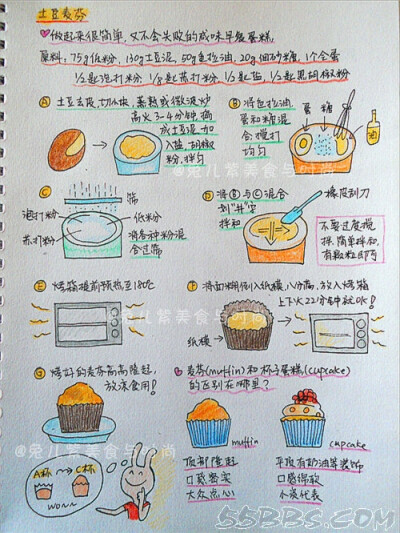 土豆麦芬
做起来很简单,又不会失败的咸味早餐蛋糕.
原料:75g低粉,130g土豆泥,50g色拉油,20g细砂糖,1个全蛋
1/2匙泡打粉,1/8匙苏打粉,1/2匙盐,1/2匙黑胡椒粉
A 土豆去皮,切小块,蒸熟或微波炉
高火3-4分钟,捣
成土豆泥,加
入盐,胡椒
粉,拌匀
B 将色拉油,
蛋和糖混
合,搅打
均匀
蛋 糖
油
C
筛
泡打粉
低粉
苏打粉
将各种粉混
合过筛
D 将B与C混合
划"井"字
拌和
橡皮刮刀
不要过度搅
拌,简单拌和,
有颗粒即可
E 烤箱提前预热至180℃
F 将面糊倒入纸模,八分满,放入烤箱
上下火22分钟就OK!
纸模
G 烤好的麦芬高高隆起,
放凉食用!
麦芬(muffin)和杯子蛋糕(cupcake)
的区别在哪里?
muffin
cupcake
顶部隆起
口感紧实
大众点心
平顶有奶油等装饰
口感绵软
小资代表
A杯 C杯
@兔儿紫美食与时尚
@兔儿紫美食与时尚
@兔儿紫美食与时尚
55BBS.COM